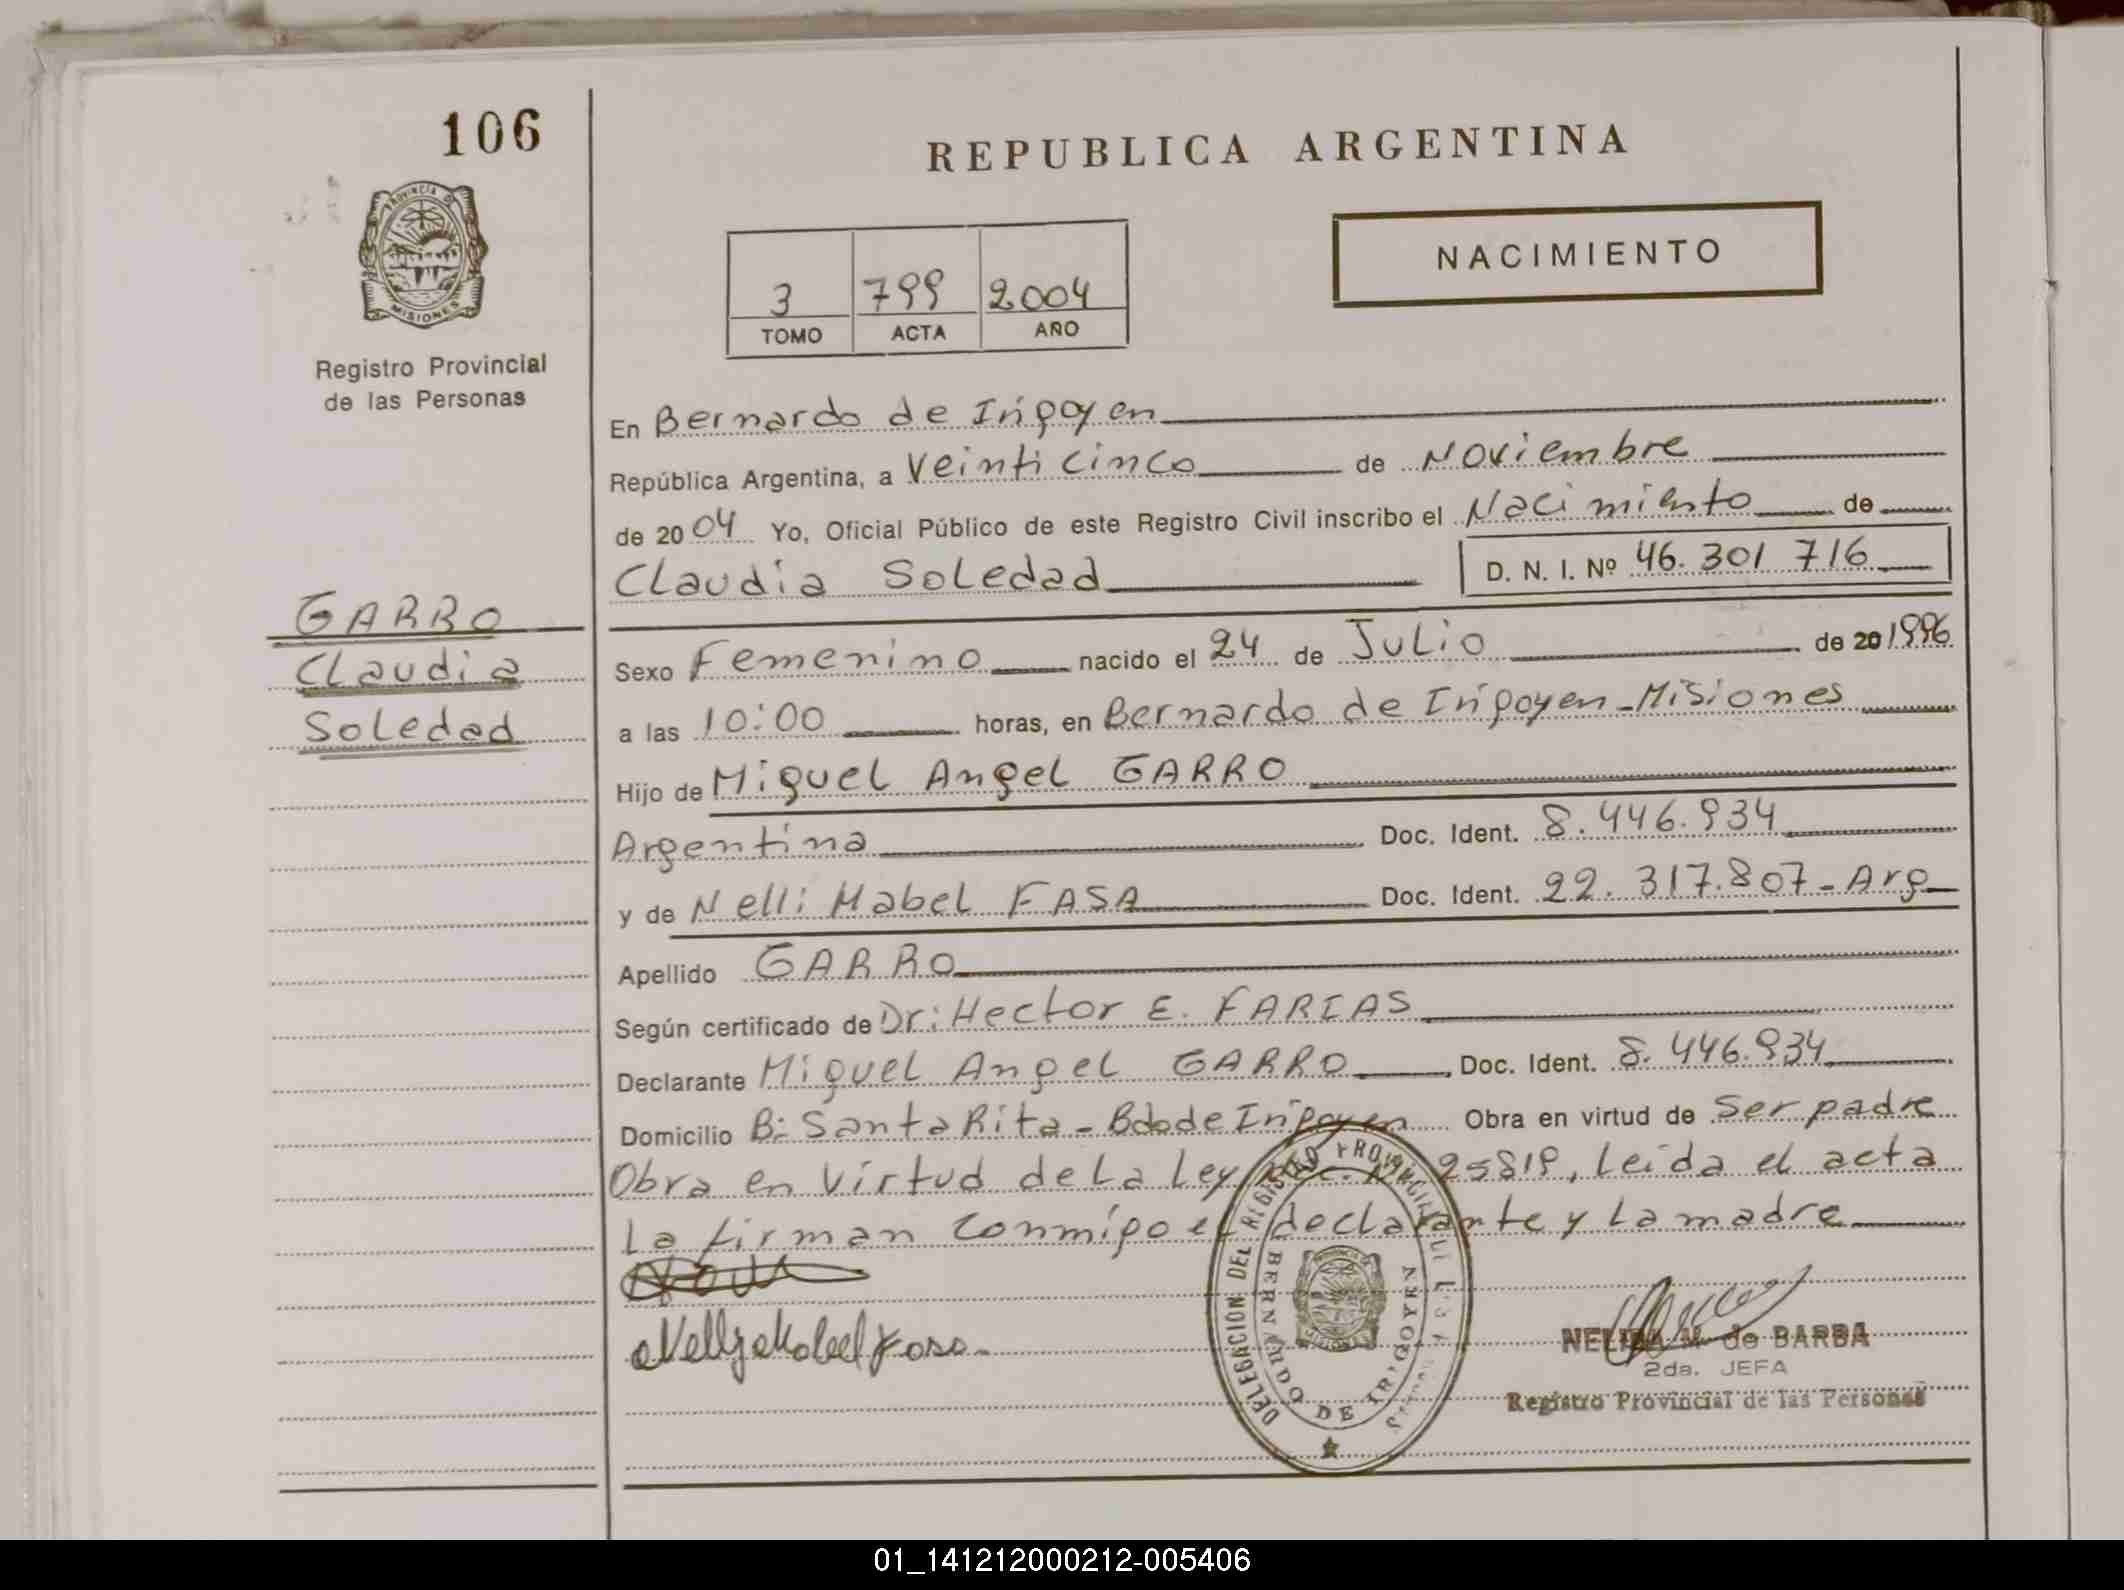 106
REPUBLICA ARGENTINA
PROVINCIA DE
MISIONES
Registro Provincial
de las Personas
NACIMIENTO
3 799 2004
TOMO ACTA AÑO
En Bernardo de Irigoyen
República Argentina, a Veinti cinco de Noviembre
de 2004 Yo, Oficial Público de este Registro Civil inscribo el Nacimiento de
Claudia Soledad D. N. I. Nº 46.301 716
GARRO
Claudia
Soledad
Sexo Femenino nacido el 24 de Julio de 20 1996
a las 10:00 horas, en Bernardo de Irigoyen - Misiones
Hijo de Miguel Angel GARRO
Argentina Doc. Ident. 8.446.934
y de Nelli Mabel FASA Doc. Ident. 22.317.807 - Arg
Apellido GARRO
Según certificado de Dr: Hector E. FARIAS
Declarante Miguel Angel GARRO Doc. Ident. 8.446.934
Domicilio B: Santa Rita - Bdo de Irigoyen Obra en virtud de Ser padre
Obra en Virtud de La Ley 25819, Leida el acta
La firman conmigo el declarante y La madre
Nelly Mabel Fasa.
DELEGACION DEL REGISTRO PROVINCIAL DE LAS
BERNARDO DE IRIGOYEN
NELIDA M. de BARBA
2da. JEFA
Registro Provincial de las Personas
01_141212000212-005406